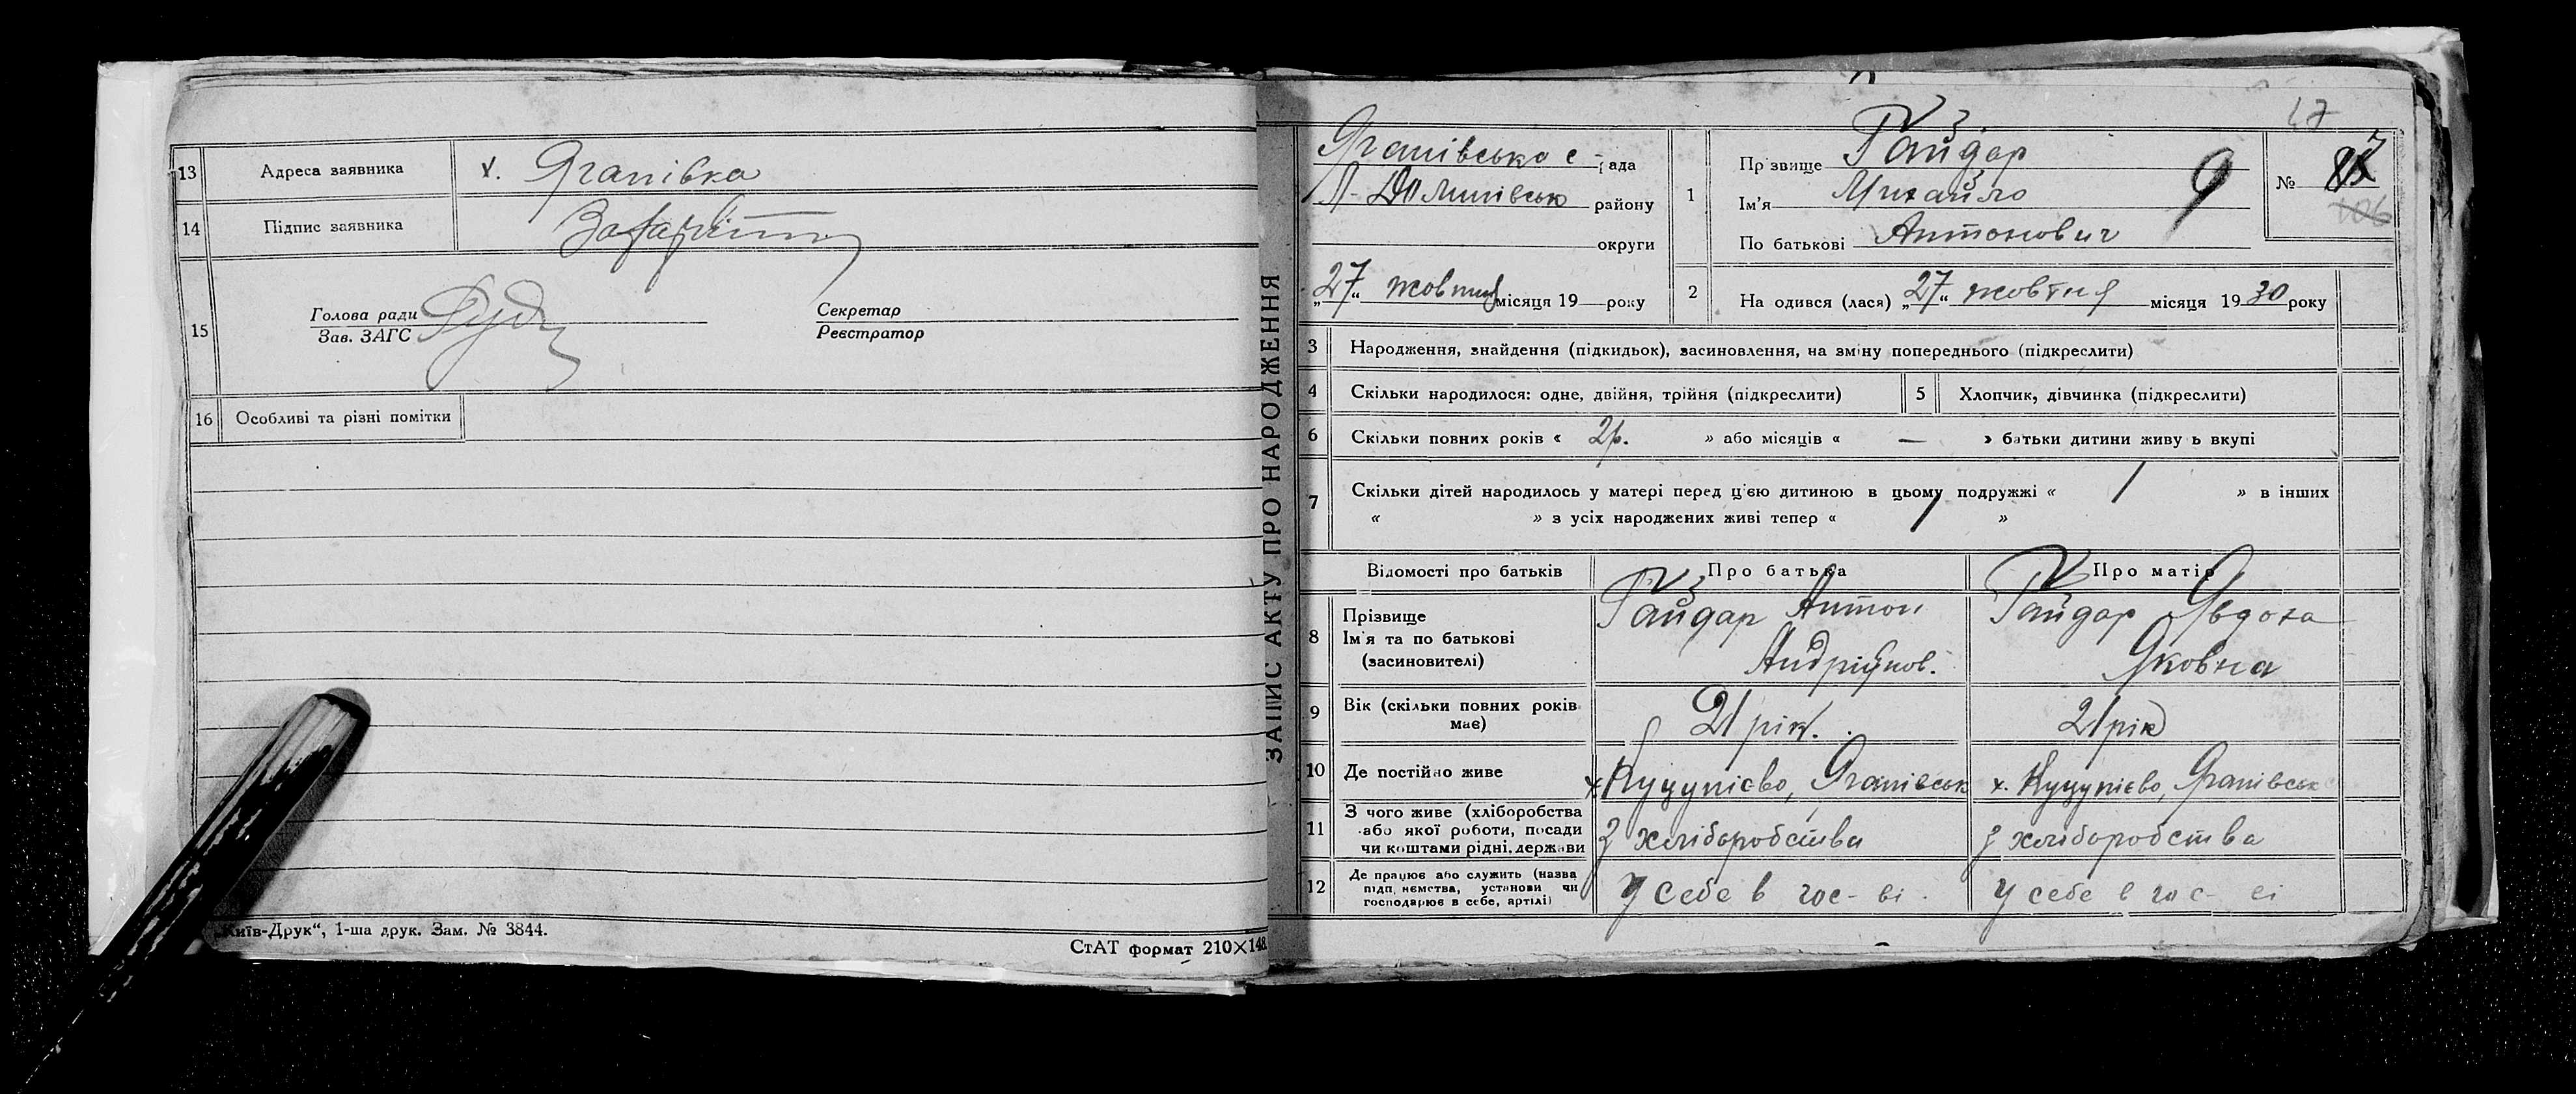 13 Адреса заявника х. Яганівка
14 Підпис заявника
15 Голова ради Секретар
Зав. ЗАГС Реєстратор
16 Особливі та різні помітки
„Київ-Друк“, 1-ша друк. Зам. № 3844.
СтАТ формат 210×148.
ЗАПИС АКТУ ПРО НАРОДЖЕННЯ
47
Яганівська с рада
району
округи
„27“ жовтня місяця 19 року
1 Прізвище Гайдар
Ім'я Михайло
По батькові Антонович
9
№
106
2 Народився (лася) „27“ жовтня місяця 1930 року
3 Народження, знайдення (підкидьок), засиновлення, на зміну попереднього (підкреслити)
4 Скільки народилося: одне, двійня, трійня (підкреслити) 5 Хлопчик, дівчинка (підкреслити)
6 Скільки повних років « 2р. » або місяців « — » батьки дитини живуть вкупі
7 Скільки дітей народилось у матері перед ц'єю дитиною в цьому подружжі « 1 » в інших
« » з усіх народжених живі тепер « 1 »
Відомості про батьків Про батька Про матір
8 Прізвище
Ім'я та по батькові
(засиновителі)
Гайдар Антон
Андрійов.
Гайдар Явдоха
Яковна
9 Вік (скільки повних років має) 21 рік. 21 рік
10 Де постійно живе х. Куцупієво, Яганівськ х. Куцупієво, Яганівськ
11 З чого живе (хліборобства
або якої роботи, посади
чи коштами рідні, держави
з хліборобства з хліборобства
12 Де працює або служить (назва
підприємства, установи чи
господарює в себе, артілі)
У себе в гос-ві. У себе в гос-ві